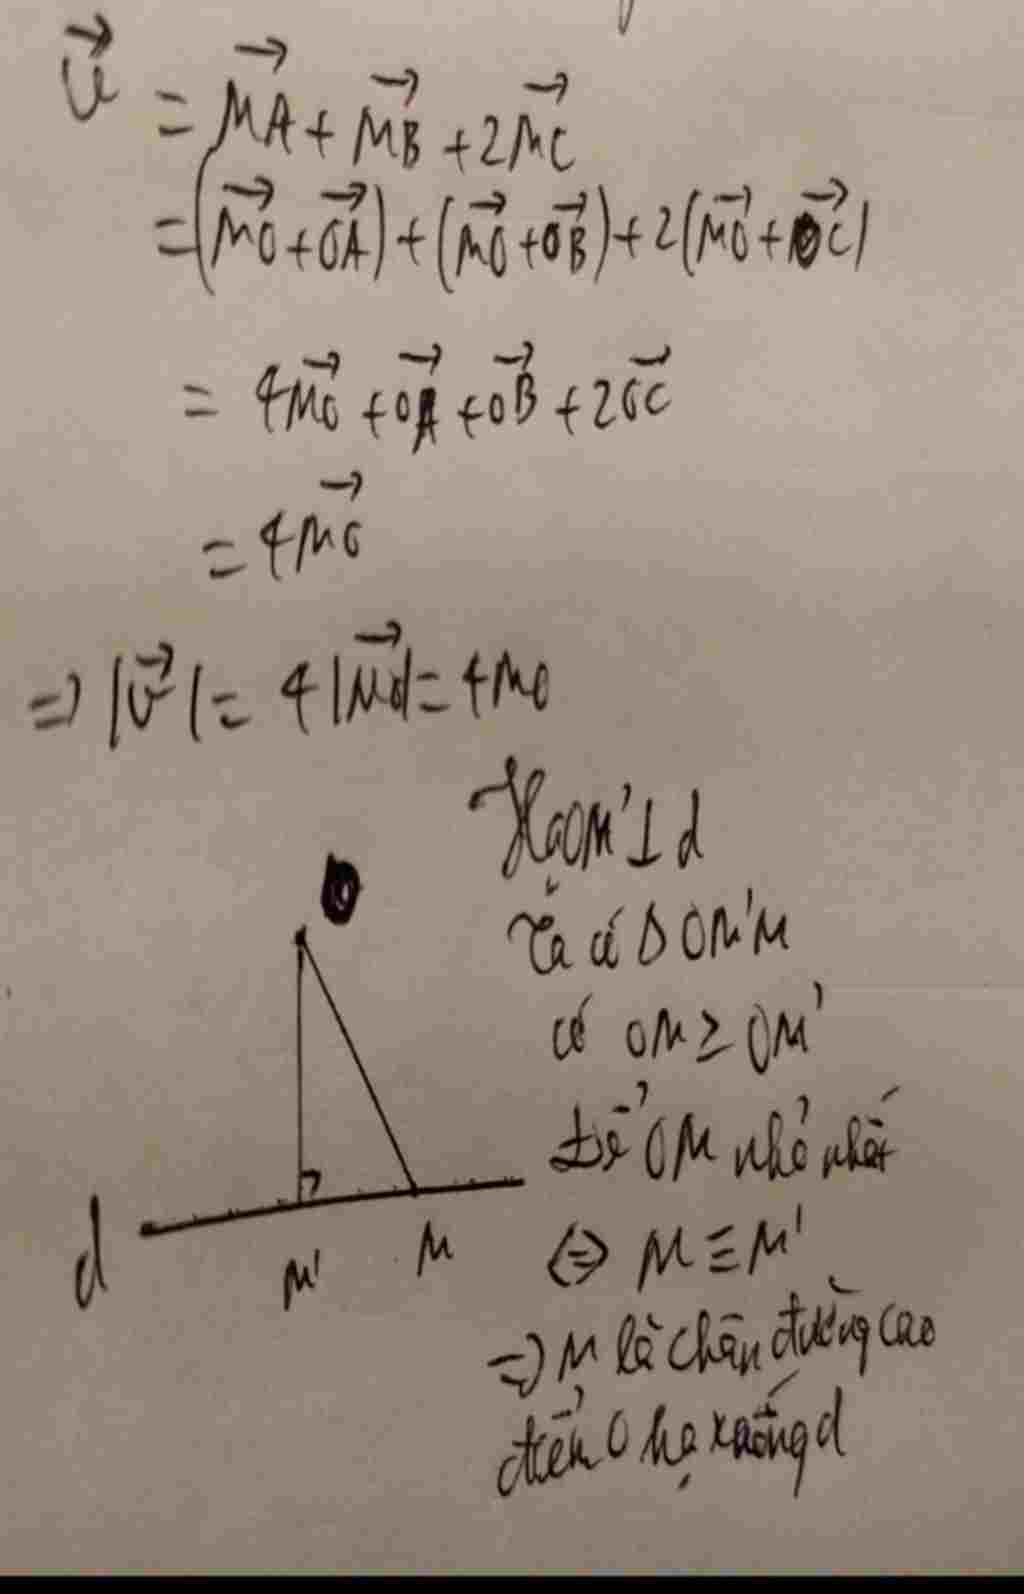 v⃗ = MA⃗ + MB⃗ + 2MC⃗
= (MO⃗ + OA⃗) + (MO⃗ + OB⃗) + 2(MO⃗ + OC⃗)
= 4MO⃗ + OA⃗ + OB⃗ + 2OC⃗
= 4MO⃗
=> |v⃗| = 4|MO⃗| = 4MO
Hạ OM' ⊥ d
Ta có Δ OM'M
có OM ≥ OM'
Để OM nhỏ nhất
<=> M ≡ M'
=> M là chân đường cao
điểm O hạ xuống d
O
d
M'
M